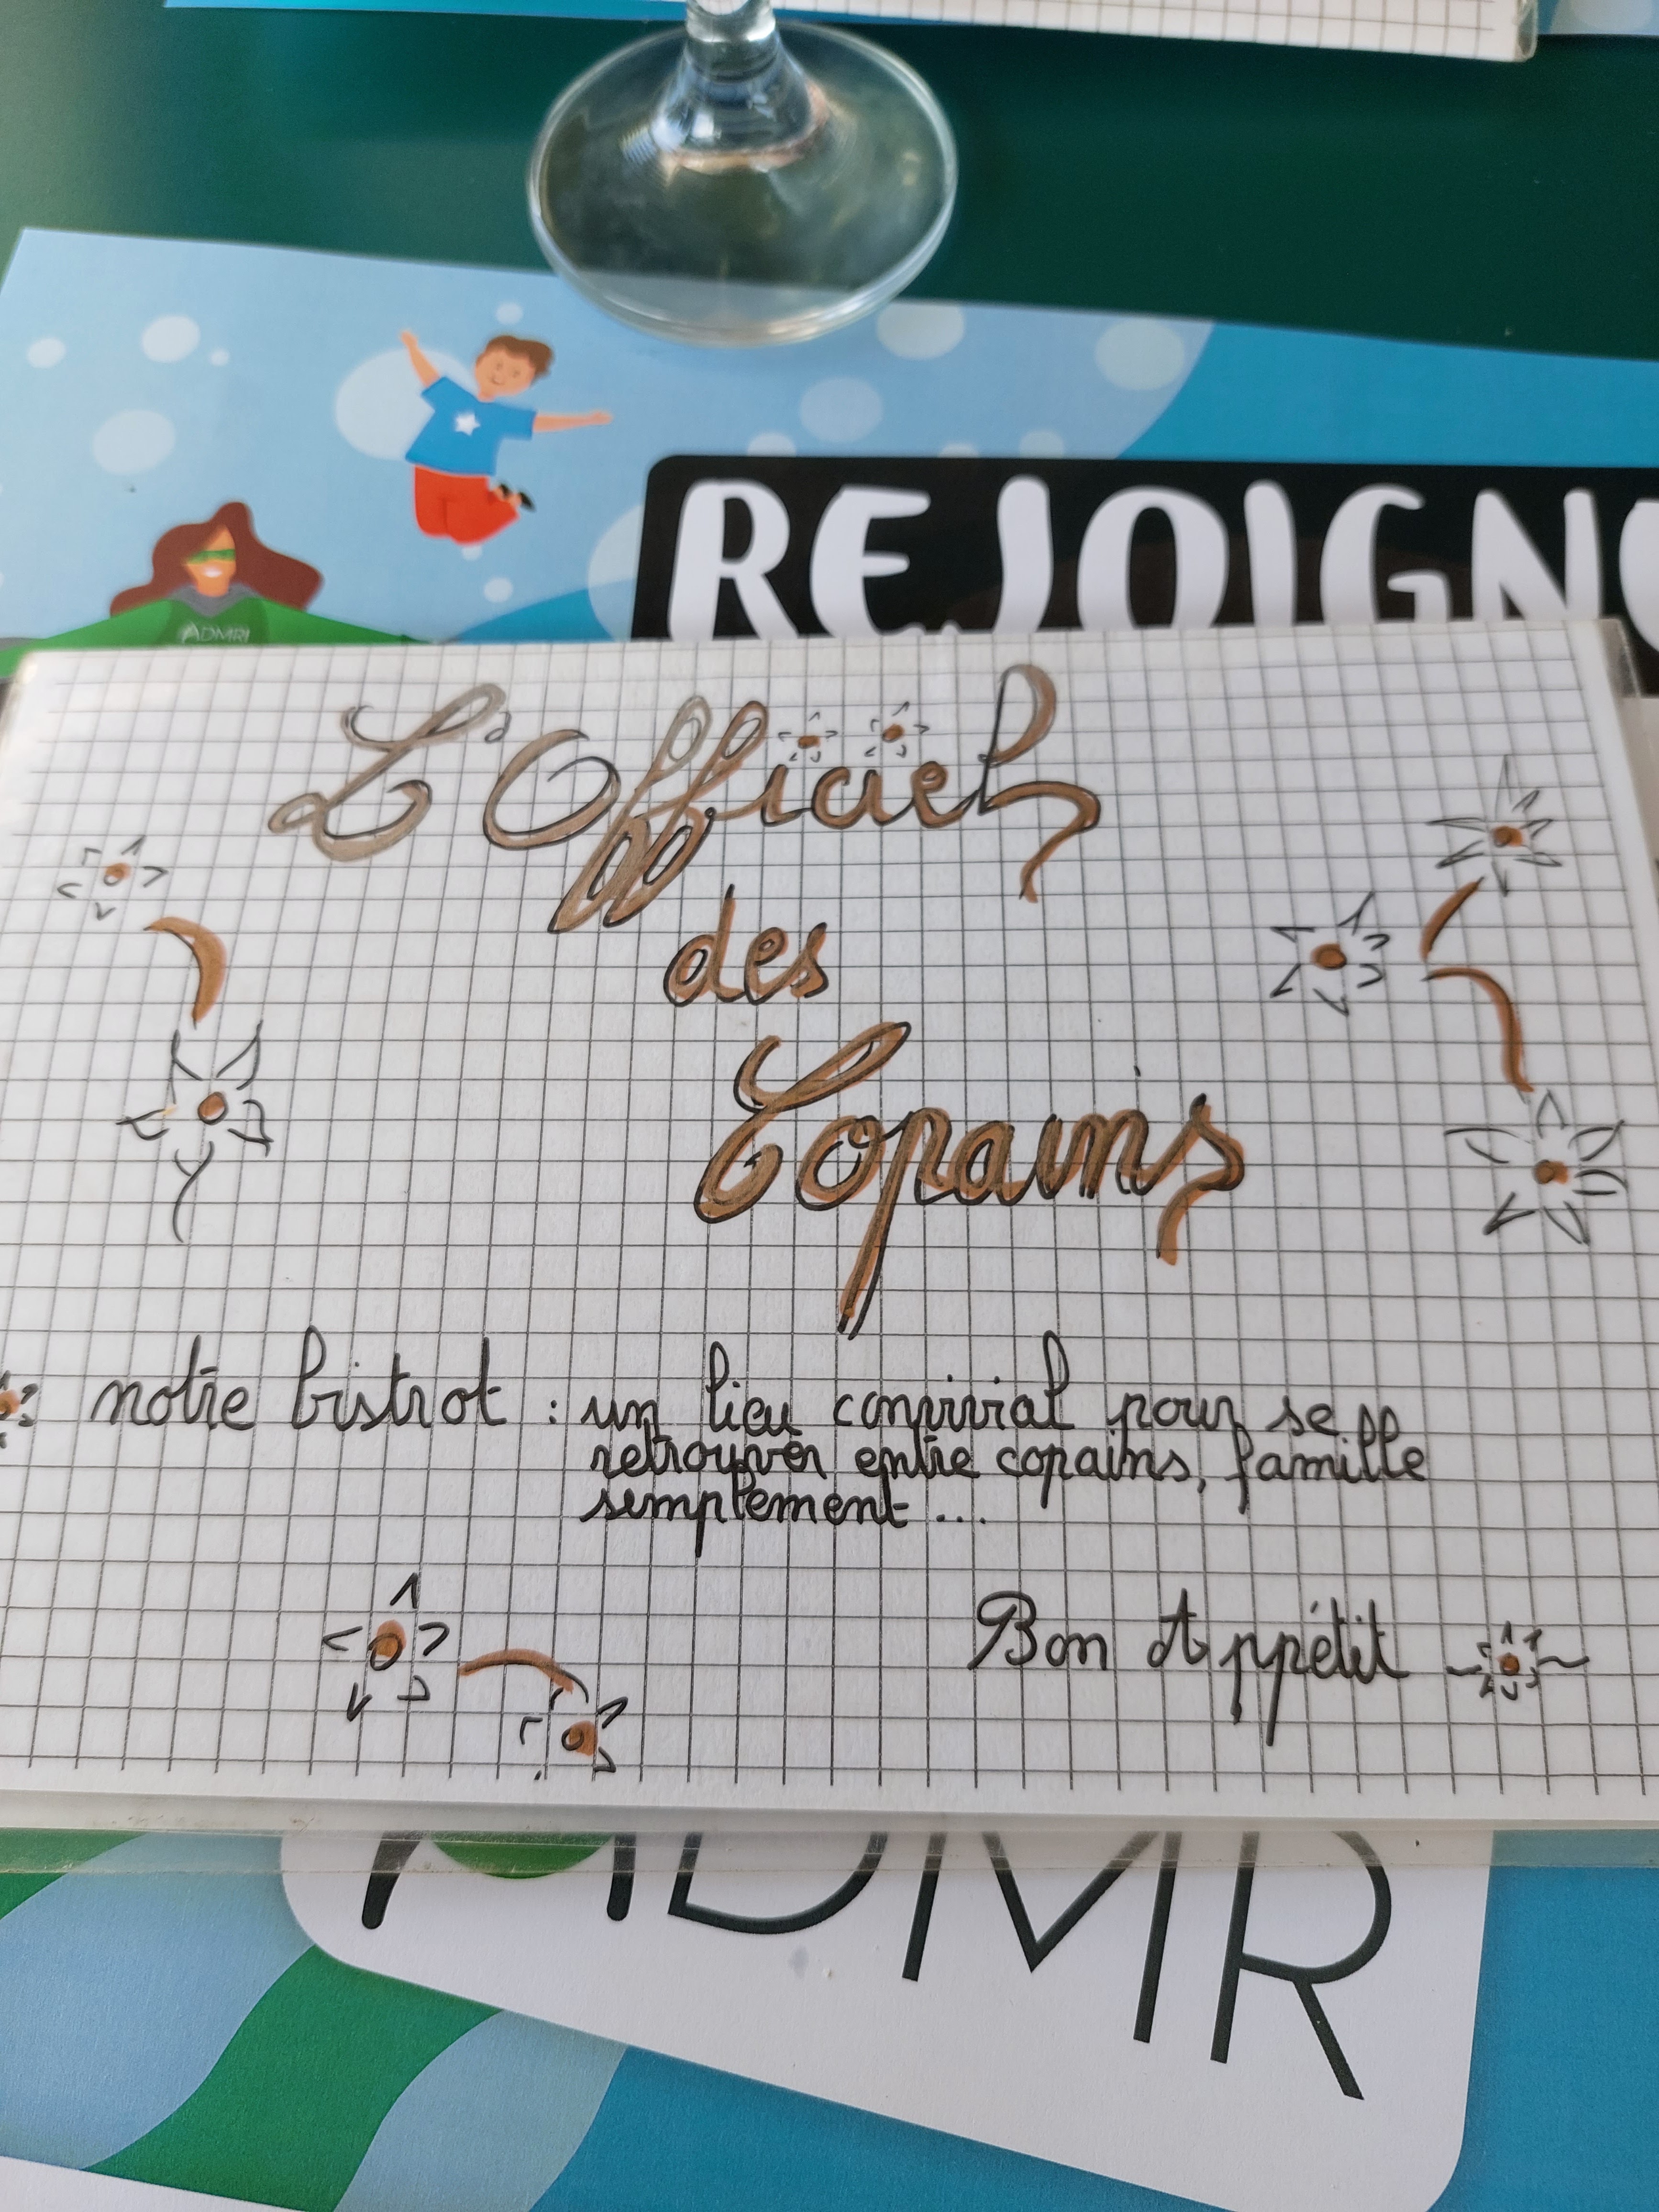 REJOIGN
ADMR
L'Officiel
des
Copains
notre bistrot : un lieu convivial pour se
retrouver entre copains, famille
simplement ...
Bon Appétit
ADMR